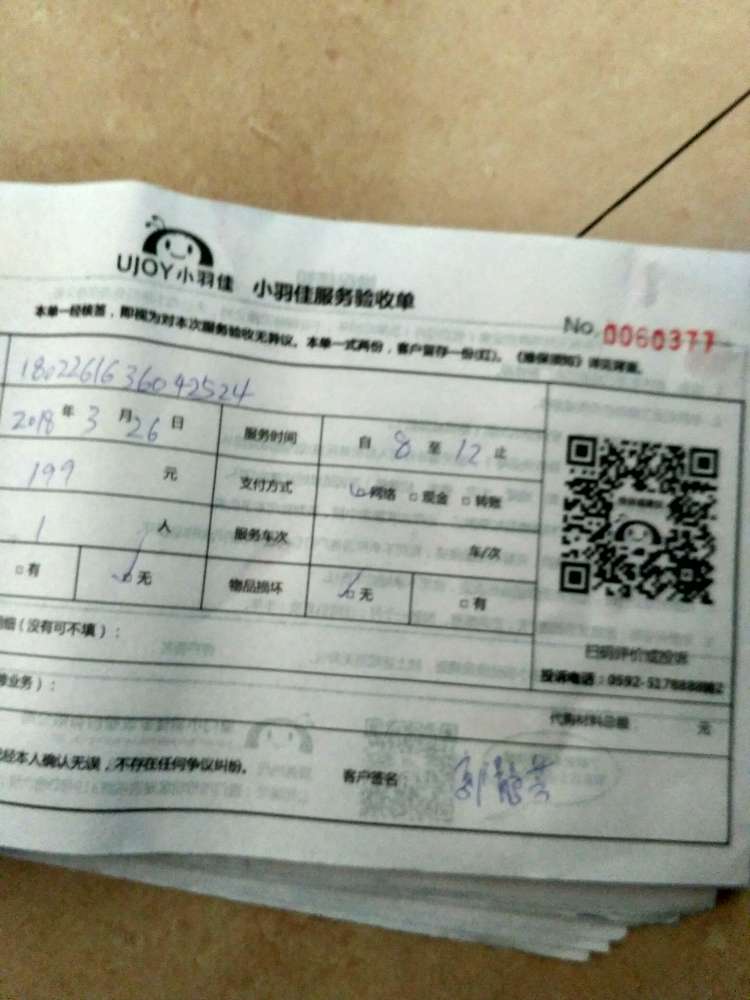 UJOY小羽佳 小羽佳服务验收单
No. 0060377
本单一经核签，即视为对本次服务验收无异议。本单一式两份，客户留存一份(红)。《维保须知》详见背面。
1802261636092524
2018年3月26日 服务时间 自8至12止
199元 支付方式 网络 □现金 □转账
1人 服务车次 车/次
□有 □无 物品损坏 □无 □有
细（没有可不填）：
扫码评价或投诉
业务）：
代购材料总额 元
经本人确认无误，不存在任何争议纠纷。 客户签名：